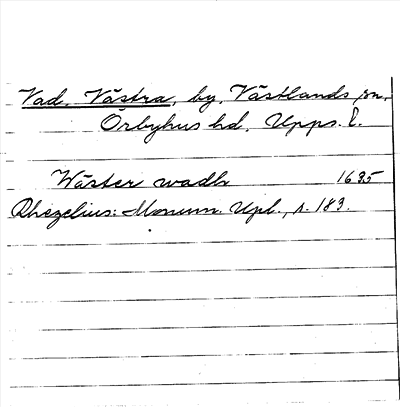 Vad, Västra, by, Västlands sn,
Örbyhus hd, Upps. l.
Wäster wadh 1635
Rhezelius: Monum. Upl., s. 183.